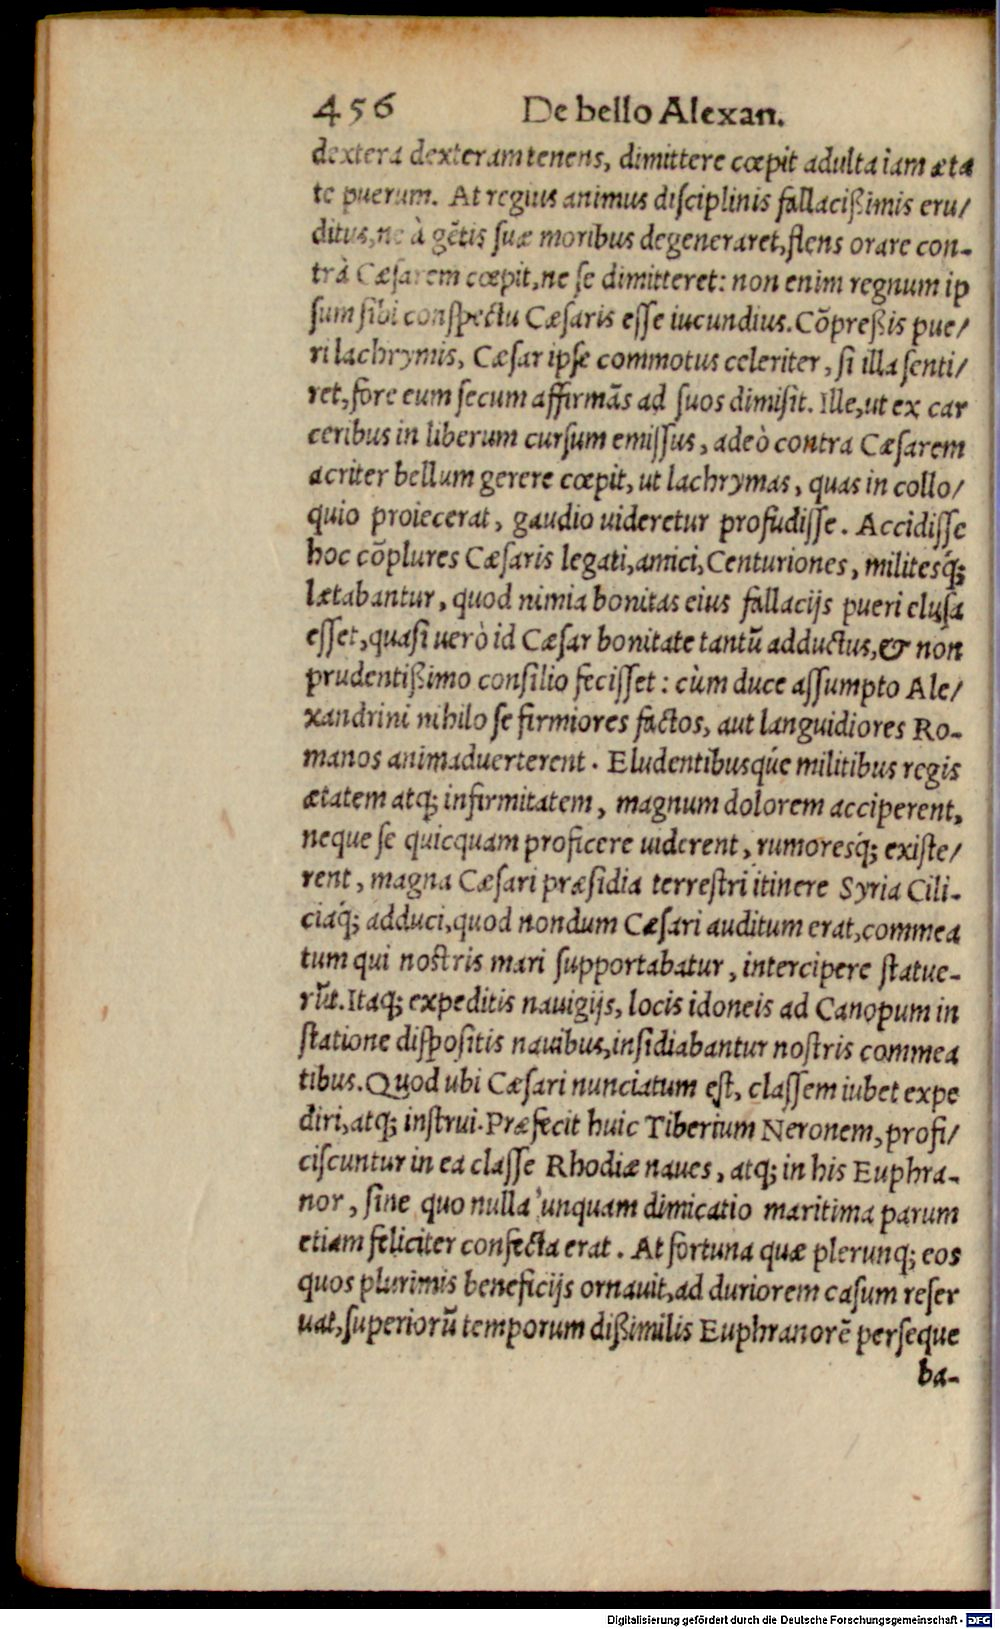 456 De bello Alexan.
dextera dexteram tenens, dimittere cœpit adulta iam æta
te puerum. At regius animus disciplinis fallacißimis eru/
ditus, ne à gẽtis suæ moribus degeneraret, flens orare con-
trà Cæsarem cœpit, ne se dimitteret: non enim regnum ip
sum sibi conspectu Cæsaris esse iucundius. Cõpreßis pue/
ri lachrymis, Cæsar ipse commotus celeriter, si illa senti/
ret, fore eum secum affirmãs ad suos dimisit. Ille, ut ex car
ceribus in liberum cursum emissus, adeò contra Cæsarem
acriter bellum gerere cœpit, ut lachrymas, quas in collo/
quio proiecerat, gaudio uideretur profudisse. Accidisse
hoc cõplures Cæsaris legati, amici, Centuriones, militesq́;
lætabantur, quod nimia bonitas eius fallacijs pueri elusa
esset, quasi uerò id Cæsar bonitate tantũ adductus, & non
prudentißimo consilio fecisset: cùm duce assumpto Ale/
xandrini nihilo se firmiores factos, aut languidiores Ro-
manos animaduerterent. Eludentibusqúe militibus regis
ætatem atq; infirmitatem, magnum dolorem acciperent,
neque se quicquam proficere uiderent, rumoresq́; existe/
rent, magna Cæsari præsidia terrestri itinere Syria Cili-
ciaq́; adduci, quod nondum Cæsari auditum erat, commea
tum qui nostris mari supportabatur, intercipere statue-
rũt. Itaq; expeditis nauigijs, locis idoneis ad Canopum in
statione dispositis nauibus, insidiabantur nostris commea
tibus. Quod ubi Cæsari nunciatum est, classem iubet expe
diri, atq; instrui. Præfecit huic Tiberium Neronem, profi/
ciscuntur in ea classe Rhodiæ naues, atq; in his Euphra-
nor, sine quo nulla unquam dimicatio maritima parum
etiam feliciter confecta erat. At fortuna quæ plerunq; eos
quos plurimis beneficijs ornauit, ad duriorem casum reser
uat, superiorũ temporum dißimilis Euphranorẽ perseque
ba-
Digitalisierung gefördert durch die Deutsche Forschungsgemeinschaft - DFG